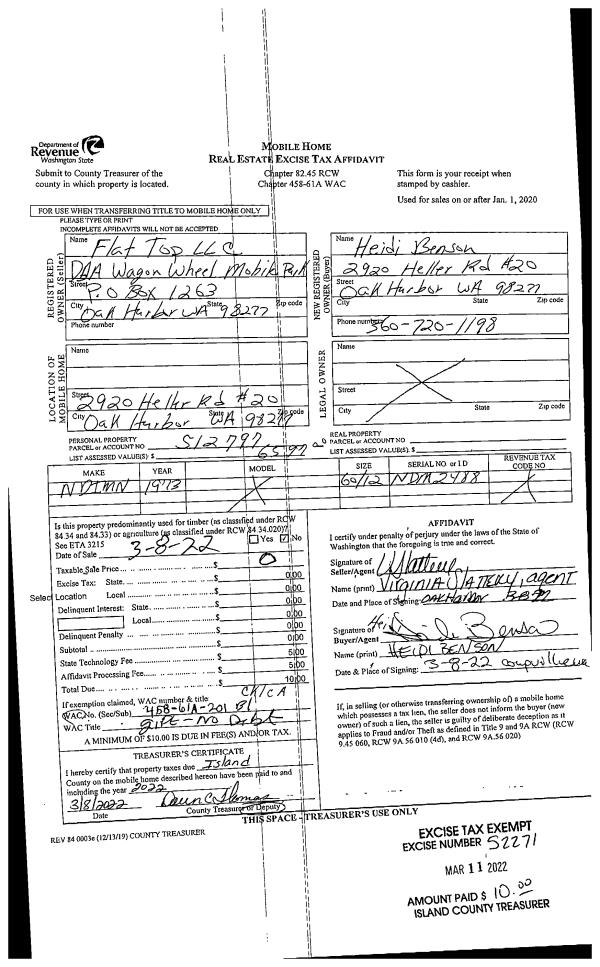 Department of
Revenue
Washington State
Submit to County Treasurer of the
county in which property is located.
MOBILE HOME
REAL ESTATE EXCISE TAX AFFIDAVIT
Chapter 82.45 RCW
Chapter 458-61A WAC
This form is your receipt when
stamped by cashier.
Used for sales on or after Jan. 1, 2020
FOR USE WHEN TRANSFERRING TITLE TO MOBILE HOME ONLY
PLEASE TYPE OR PRINT
INCOMPLETE AFFIDAVITS WILL NOT BE ACCEPTED
REGISTERED OWNER (Seller)
Name Flat Top LLC
DBA Wagon Wheel Mobile Park
Street P.O Box 1263
City Oak Harbor WA State 98277 Zip code
Phone number
NEW REGISTERED OWNER (Buyer)
Name Heidi Benson
2920 Heller Rd #20
Street
Oak Harbor WA 98277
City State Zip code
Phone number 360-720-1198
LOCATION OF MOBILE HOME
Name
Street 2920 Heller Rd #20
City Oak Harbor State WA 98277 Zip code
LEGAL OWNER
Name
Street
City State Zip code
PERSONAL PROPERTY
PARCEL or ACCOUNT NO 512797
LIST ASSESSED VALUE(S) $ 6597
REAL PROPERTY
PARCEL or ACCOUNT NO
LIST ASSESSED VALUE(S) $
MAKE YEAR MODEL SIZE SERIAL NO. or I D REVENUE TAX CODE NO
NDIMN 1973 X 60/12 NDM2488 X
Is this property predominantly used for timber (as classified under RCW
84.34 and 84.33) or agriculture (as classified under RCW 84.34.020)?
See ETA 3215 Yes No
Date of Sale 3-8-22
Taxable Sale Price $ 0
Excise Tax: State $ 0.00
Select Location Local $ 0.00
Delinquent Interest: State $ 0.00
Local $ 0.00
Delinquent Penalty $ 0.00
Subtotal $ 0.00
State Technology Fee $ 5.00
Affidavit Processing Fee $ 5.00
Total Due $ 10.00
CK/CA
If exemption claimed, WAC number & title
WAC No. (Sec/Sub) 458-61A-201 B1
WAC Title gift-No Debt
A MINIMUM OF $10.00 IS DUE IN FEE(S) AND/OR TAX.
TREASURER'S CERTIFICATE
I hereby certify that property taxes due Island
County on the mobile home described hereon have been paid to and
including the year 2022
3/8/2022
Date County Treasurer or Deputy
AFFIDAVIT
I certify under penalty of perjury under the laws of the State of
Washington that the foregoing is true and correct.
Signature of
Seller/Agent
Name (print) VIRGINIA SLATTERY, agent
Date and Place of Signing: OAK HARBOR
Signature of
Buyer/Agent Heidi Benson
Name (print) HEIDI BENSON
Date & Place of Signing: 3-8-22 coupville wa
If, in selling (or otherwise transferring ownership of) a mobile home
which possesses a tax lien, the seller does not inform the buyer (new
owner) of such a lien, the seller is guilty of deliberate deception as it
applies to Fraud and/or Theft as defined in Title 9 and 9A RCW (RCW
9.45 060, RCW 9A 56 010 (4d), and RCW 9A.56 020)
THIS SPACE - TREASURER'S USE ONLY
REV 84 0003e (12/13/19) COUNTY TREASURER
EXCISE TAX EXEMPT
EXCISE NUMBER 52271
MAR 11 2022
AMOUNT PAID $ 10.00
ISLAND COUNTY TREASURER